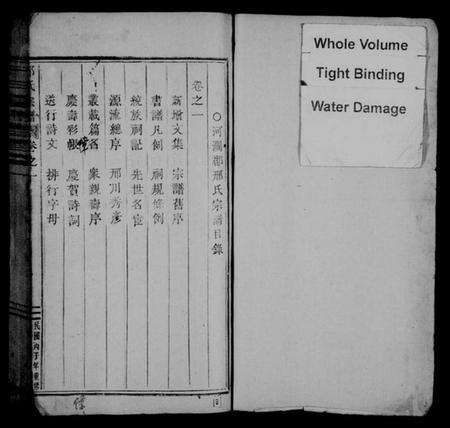 ○河澗郡邢氏宗譜目錄
卷之一
新增文集 宗譜舊序
書譜凡例 祠規條例
統族祠記 先世名宦
源流總序 邢川秀彥
叢載篇名 衆親壽序
慶壽彩帳 慶賀詩詞
送行詩文 排行字母
卷之一
民國丙子年重修
Whole Volume
Tight Binding
Water Damage